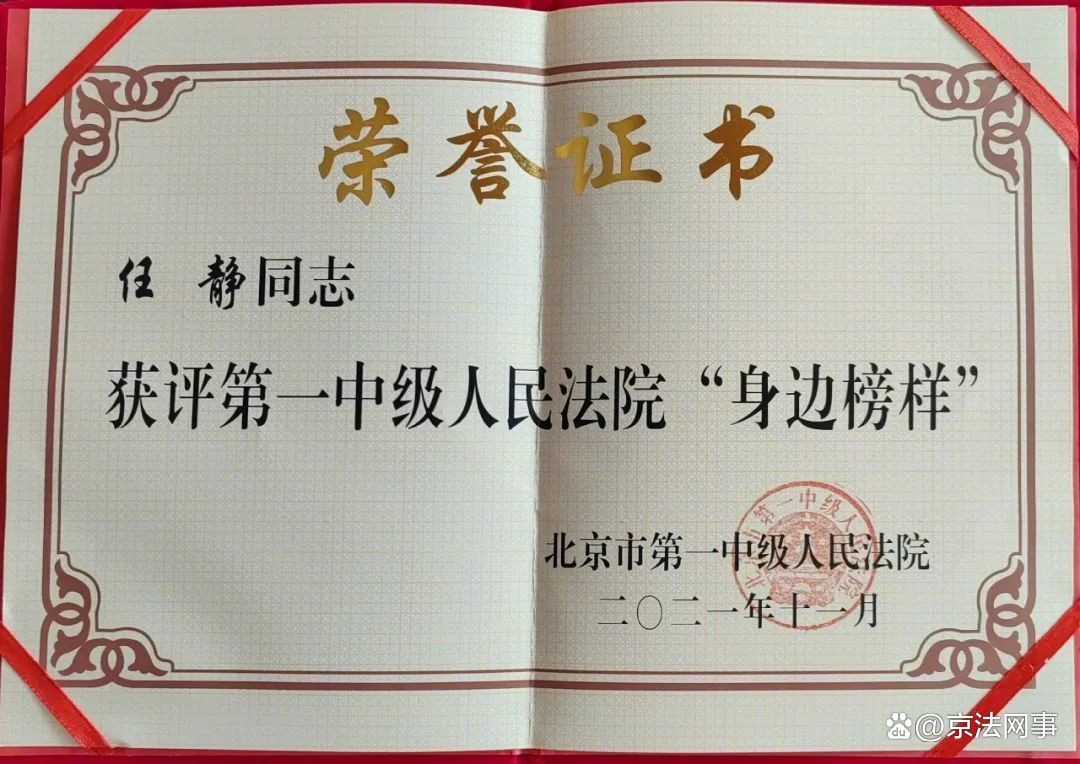 荣誉证书
任 静同志
获评第一中级人民法院“身边榜样”
北京市第一中级人民法院
二〇二一年十一月
@京法网事